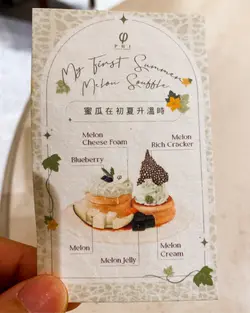 PHI
My First Summer
Melon Souffle
蜜瓜在初夏升溫時
Melon
Cheese Foam
Melon
Rich Cracker
Blueberry
Melon
Melon Jelly
Melon
Cream